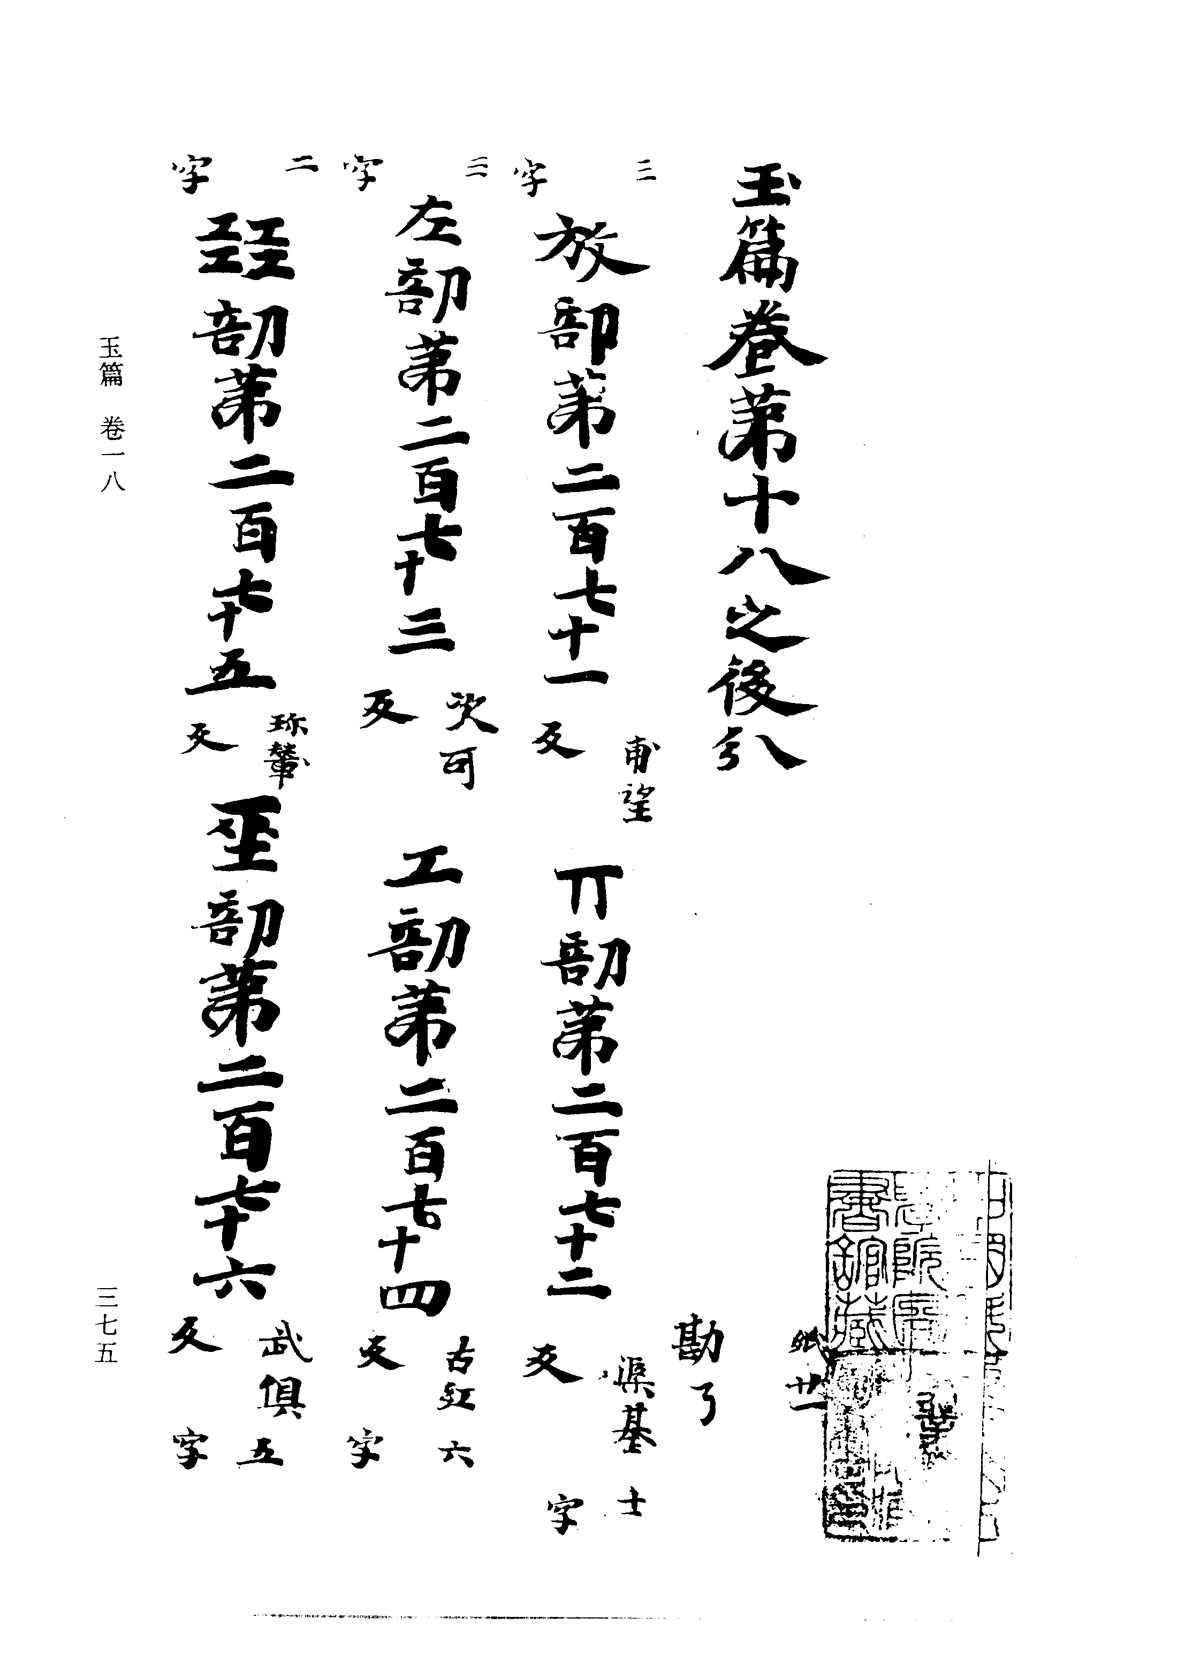 紙廿一
玉篇卷第十八之後分
勘了
三字
放部第二百七十一 甫望反 丌部第二百七十二 渠基反 字
三字
左部第二百七十三 次可反 工部第二百七十四 古紅反 六字
二字
㠭部第二百七十五 珎輦反 巫部第二百七十六 武俱反 五字
玉篇 卷一八
三七五
中國科
學院圖
書館藏